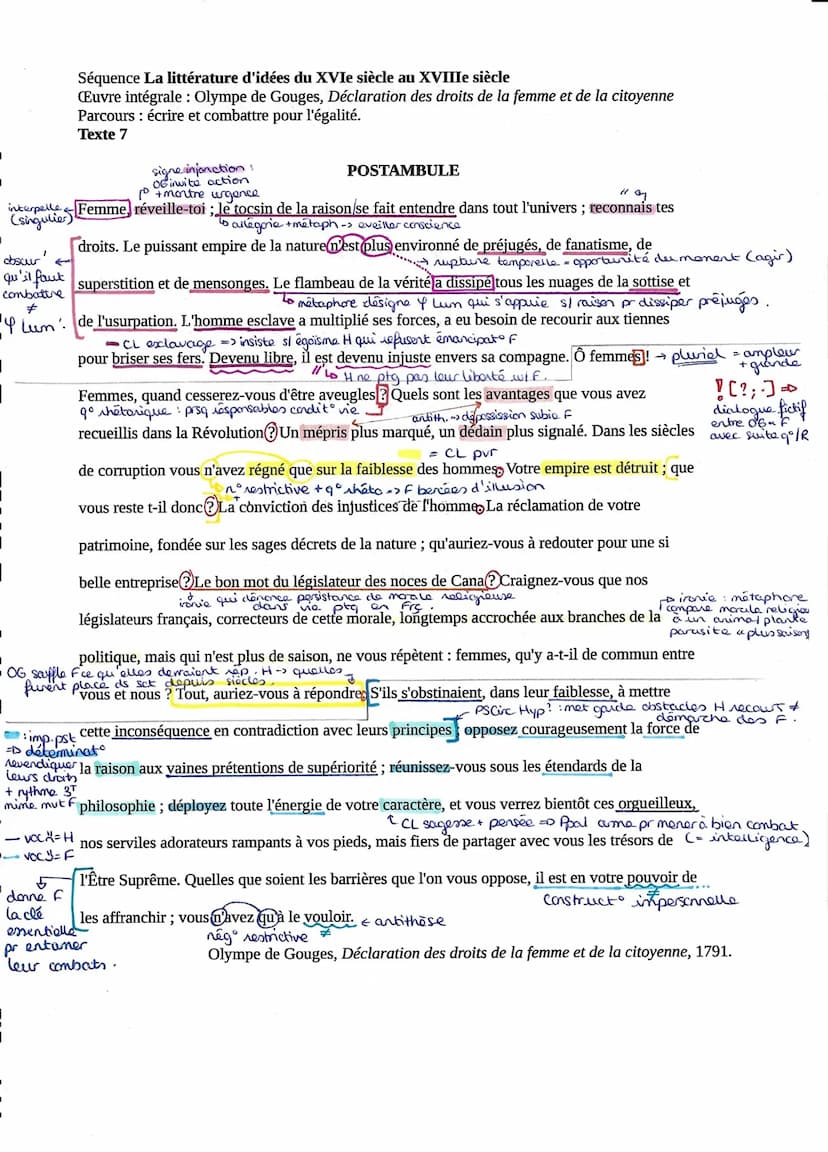 Séquence La littérature d'idées du XVIe siècle au XVIIIe siècle
Œuvre intégrale : Olympe de Gouges, Déclaration des droits de la femme et de la citoyenne
Parcours : écrire et combattre pour l'égalité.
Texte 7
POSTAMBULE
signe injonction :
OG invite action
+ montre urgence
interpelle
(singulier)
Femme, réveille-toi ; le tocsin de la raison/se fait entendre dans tout l'univers ; reconnais tes
allégorie + métaph -> éveiller conscience
droits. Le puissant empire de la nature n'est plus environné de préjugés, de fanatisme, de
-> rupture temporelle = opportunité du moment (agir)
obscur'
qu'il faut
combattre
≠
φ Lum'.
superstition et de mensonges. Le flambeau de la vérité a dissipé tous les nuages de la sottise et
métaphore désigne φ Lum qui s'appuie s/ raison pr dissiper préjugés.
de l'usurpation. L'homme esclave a multiplié ses forces, a eu besoin de recourir aux tiennes
CL esclavage => insiste s/ égoïsme H qui refusent émancipat° F
pour briser ses fers. Devenu libre, il est devenu injuste envers sa compagne. Ô femmes ! -> pluriel = ampleur
+ grande
// H ne ptg pas leur liberté w/ F.
Femmes, quand cesserez-vous d'être aveugles ? Quels sont les avantages que vous avez
q° rhétorique : prsq responsables condit° vie
antith. -> dépossession subie F
! [? ; .] =>
dialogue fictif
entre OG & F
avec suite q°/R
recueillis dans la Révolution ? Un mépris plus marqué, un dédain plus signalé. Dans les siècles
= CL pvr
de corruption vous n'avez régné que sur la faiblesse des hommes. Votre empire est détruit ; que
n° restrictive + q° rhéto => F bercées d'illusion
vous reste t-il donc ? La conviction des injustices de l'homme. La réclamation de votre
patrimoine, fondée sur les sages décrets de la nature ; qu'auriez-vous à redouter pour une si
belle entreprise ? Le bon mot du législateur des noces de Cana ? Craignez-vous que nos
ironie qui dénonce persistance de morale religieuse
dans vie ptq en Frç.
législateurs français, correcteurs de cette morale, longtemps accrochée aux branches de la
ironie : métaphore
compare morale religion
à un animal / plante
parasite "plus saison"
politique, mais qui n'est plus de saison, ne vous répètent : femmes, qu'y a-t-il de commun entre
OG souffle F ce qu'elles devraient rép. H -> quelles
furent place ds sct depuis siècles.
vous et nous ? Tout, auriez-vous à répondre. S'ils s'obstinaient, dans leur faiblesse, à mettre
PSCirc Hyp : met garde obstacles H recourt ≠
démarche des F.
: imp. pst
=> déterminat°
revendiquer
leurs droits
+ rythme 3T
mime mvt F
cette inconséquence en contradiction avec leurs principes ; opposez courageusement la force de
la raison aux vaines prétentions de supériorité ; réunissez-vous sous les étendards de la
philosophie ; déployez toute l'énergie de votre caractère, et vous verrez bientôt ces orgueilleux,
CL sagesse + pensée => Ppal arme pr mener à bien combat
(= intelligence)
— voc = H
— voc = F
nos serviles adorateurs rampants à vos pieds, mais fiers de partager avec vous les trésors de
l'Être Suprême. Quelles que soient les barrières que l'on vous oppose, il est en votre pouvoir de
construct° impersonnelle
donne F
la clé
essentielle
pr entamer
leur combats.
les affranchir ; vous n'avez qu'à le vouloir. <- antithèse
nég° restrictive ≠
Olympe de Gouges, Déclaration des droits de la femme et de la citoyenne, 1791.